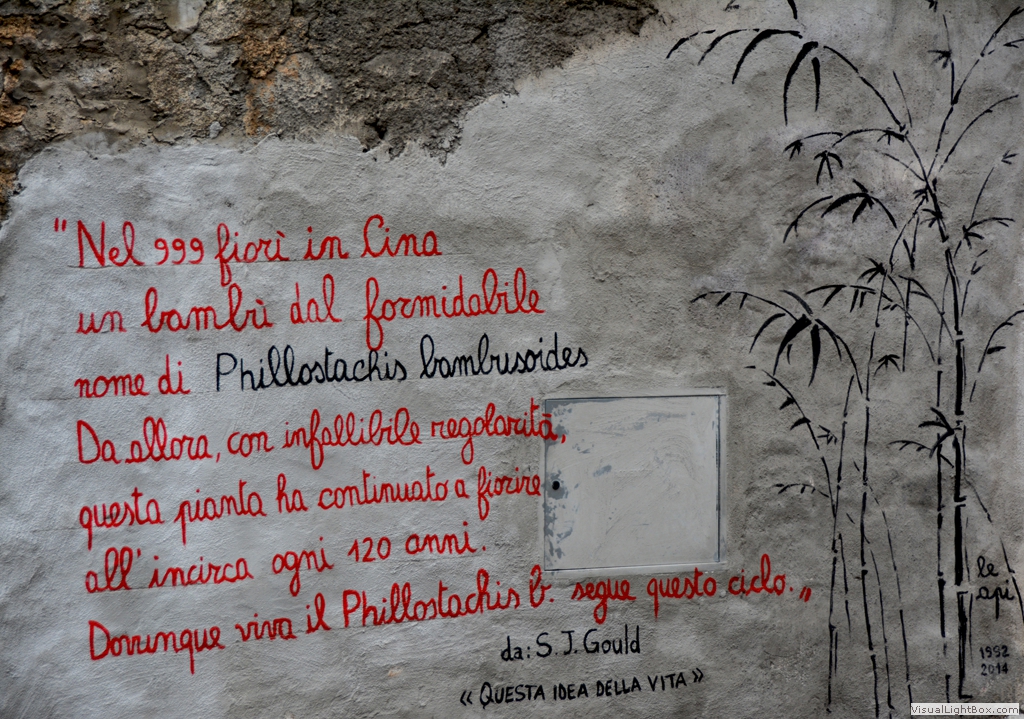 "Nel 999 fiorì in Cina
un bambù dal formidabile
nome di Phillostachis bambusoides
Da allora, con infallibile regolarità,
questa pianta ha continuato a fiorire
all'incirca ogni 120 anni.
Dovunque viva il Phillostachis b. segue questo ciclo."
da: S. J. Gould
«QUESTA IDEA DELLA VITA»
le
api
1992
2014
VisualLightBox.com